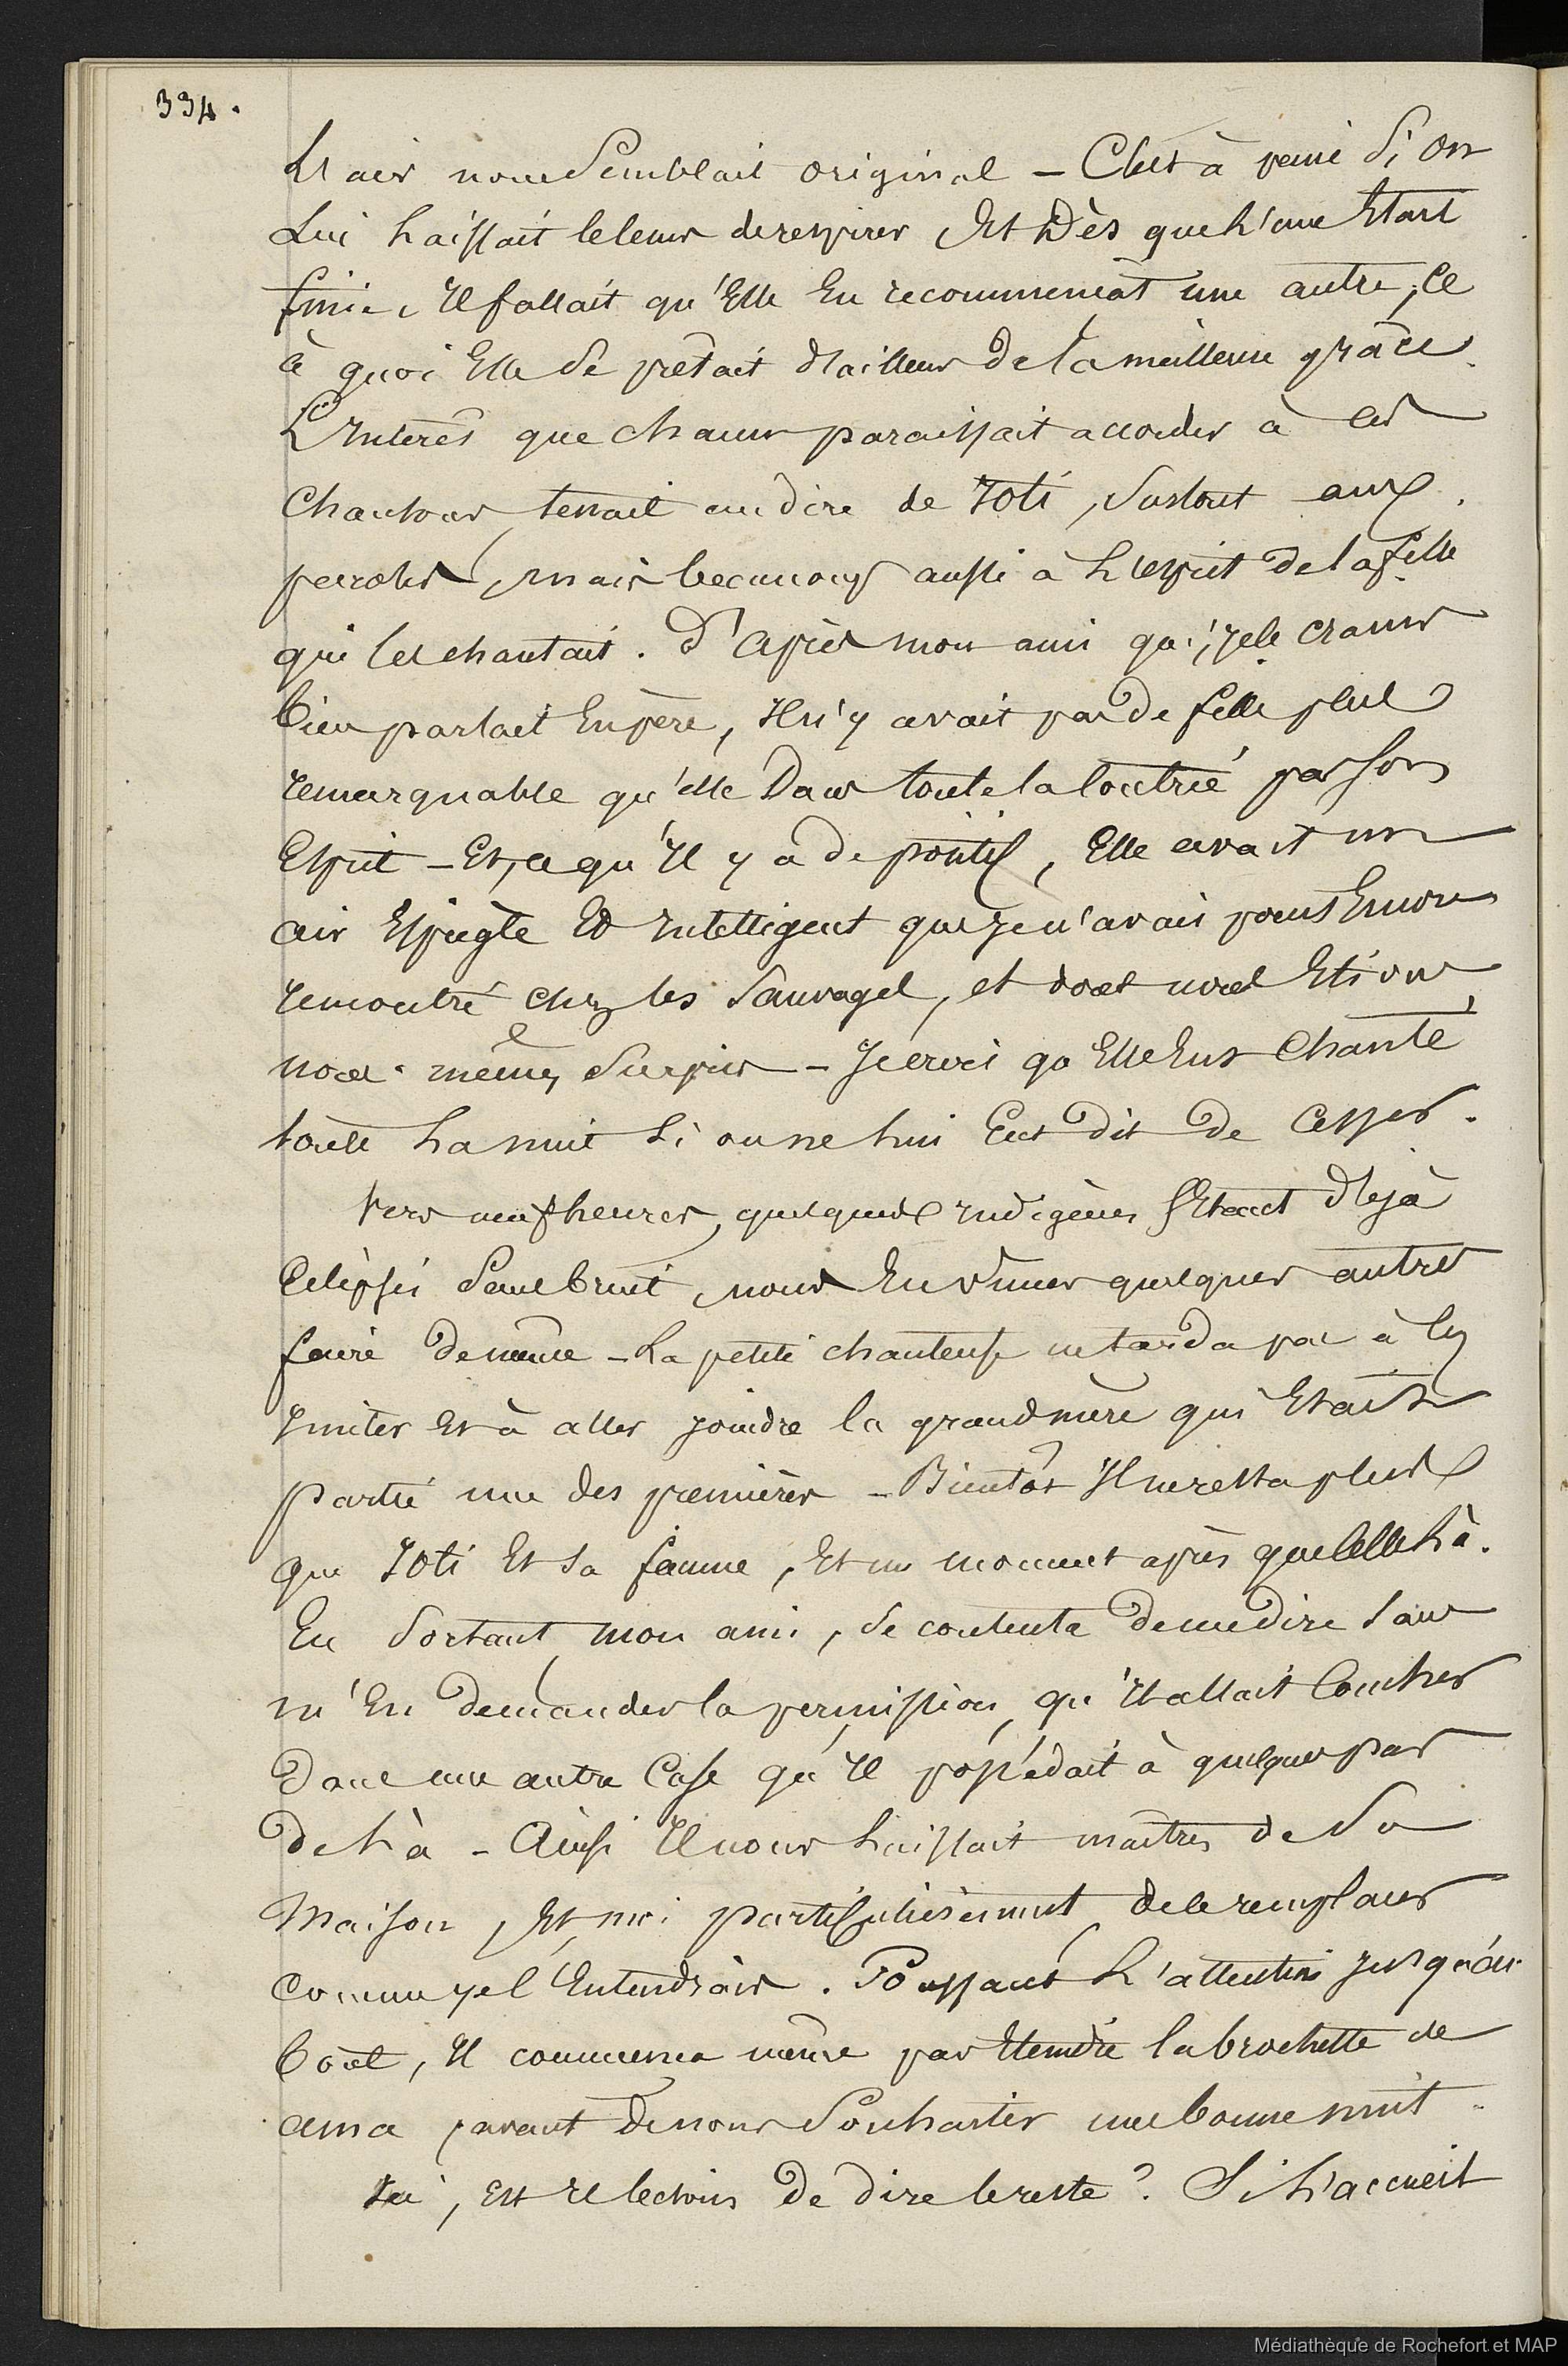 334.
Et air nous Semblait original - C'est à peine Si on
Lui Laissait le temps de respirer Et Dès que L'une Etait
finie, Il fallait qu'Elle En recommençat une autre, Ce
à quoi Elle Se prêtait d'ailleurs de la meilleure grâce.
L'Intérês que chacun paraissait accorder à ces
Chansons tenait au dire de Toti, Surtout aux
paroles, mais beaucoup aussi à L'esprit de la fille
qui les chantait. D'après mon ami qui, je le crains
bien parlait En père, Il n'y avait pas de fille plus
remarquable qu'elle Dans toute la Contrée par Son
Esprit - Et, ce qu'Il y a de positif, Elle avait un
air Espiègle Et Intelligent que je n'avais point Encore
rencontré chez les Sauvages, et dont nous Etions,
nous-mêmes Surpris - Je crois qu'Elle Eut Chanté
toute La nuit Si on ne Lui Eut dit de Cesser.
Vers neuf heures, quelques Indigènes S'Etant déjà
Eclipsés Sans bruit, nous En vîmes quelques autres
faire de même - La petite chanteuse ne tarda pas à les
Imiter Et à aller joindre la grandmère qui Etait
partie une des premières - Bientôt Il ne resta plus
que Toti Et Sa femme, Et un moment après que celle Là.
En Sortant mon ami, Se contenta de me dire Sans
m'En demander la permission, qu'Il allait Coucher
Dans une autre Case qu'Il possédait à quelques pas
de Là - Ainsi Il nous Laissait maîtres de Sa
Maison, Et moi particulièrement de le remplacer
comme je l'Entendrais. Poussant L'attention jusqu'au
bout, Il commença même par Eteindre la brochette de
ama, avant de nous Souhaiter une bonne nuit.
Ici, Est Il besoin de dire le reste? Si L'accueil
Médiathèque de Rochefort et MAP